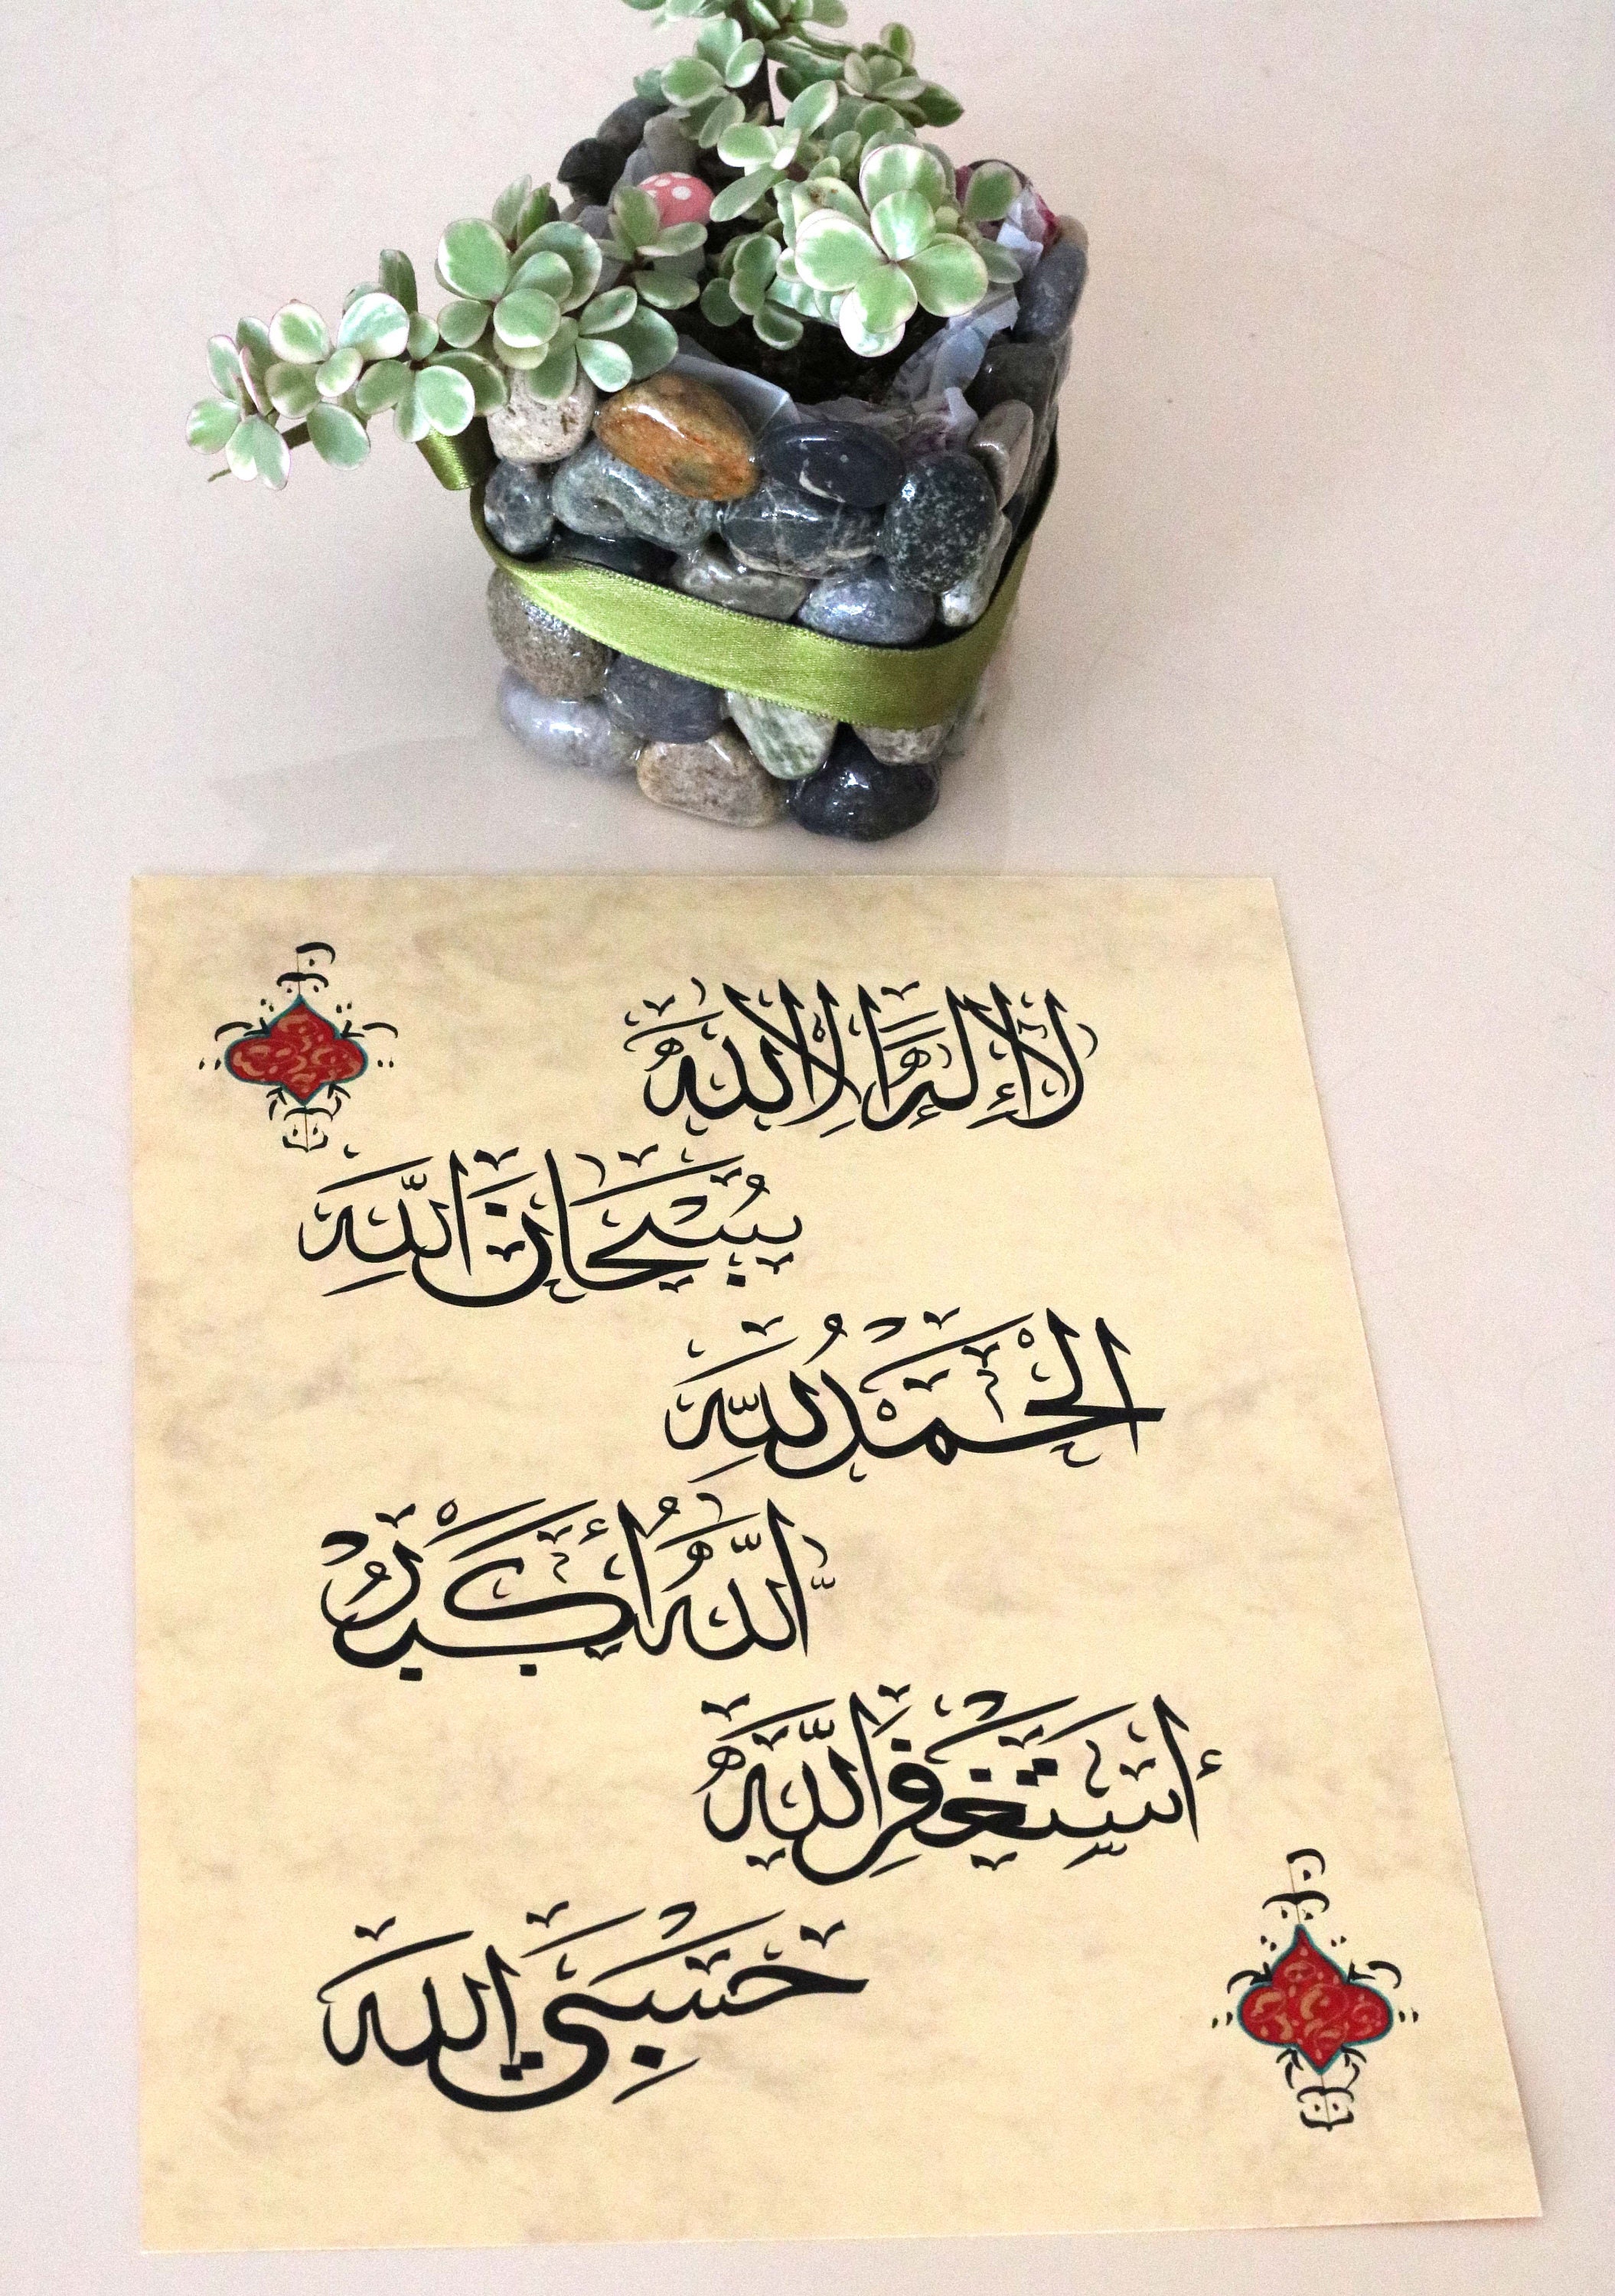 لَا إِلَٰهَ إِلَّا اللَّهُ
سُبْحَانَ اللَّهِ
الْحَمْدُ لِلَّهِ
اللَّهُ أَكْبَرُ
أَسْتَغْفِرُ اللَّهَ
حَسْبِيَ اللَّهُ